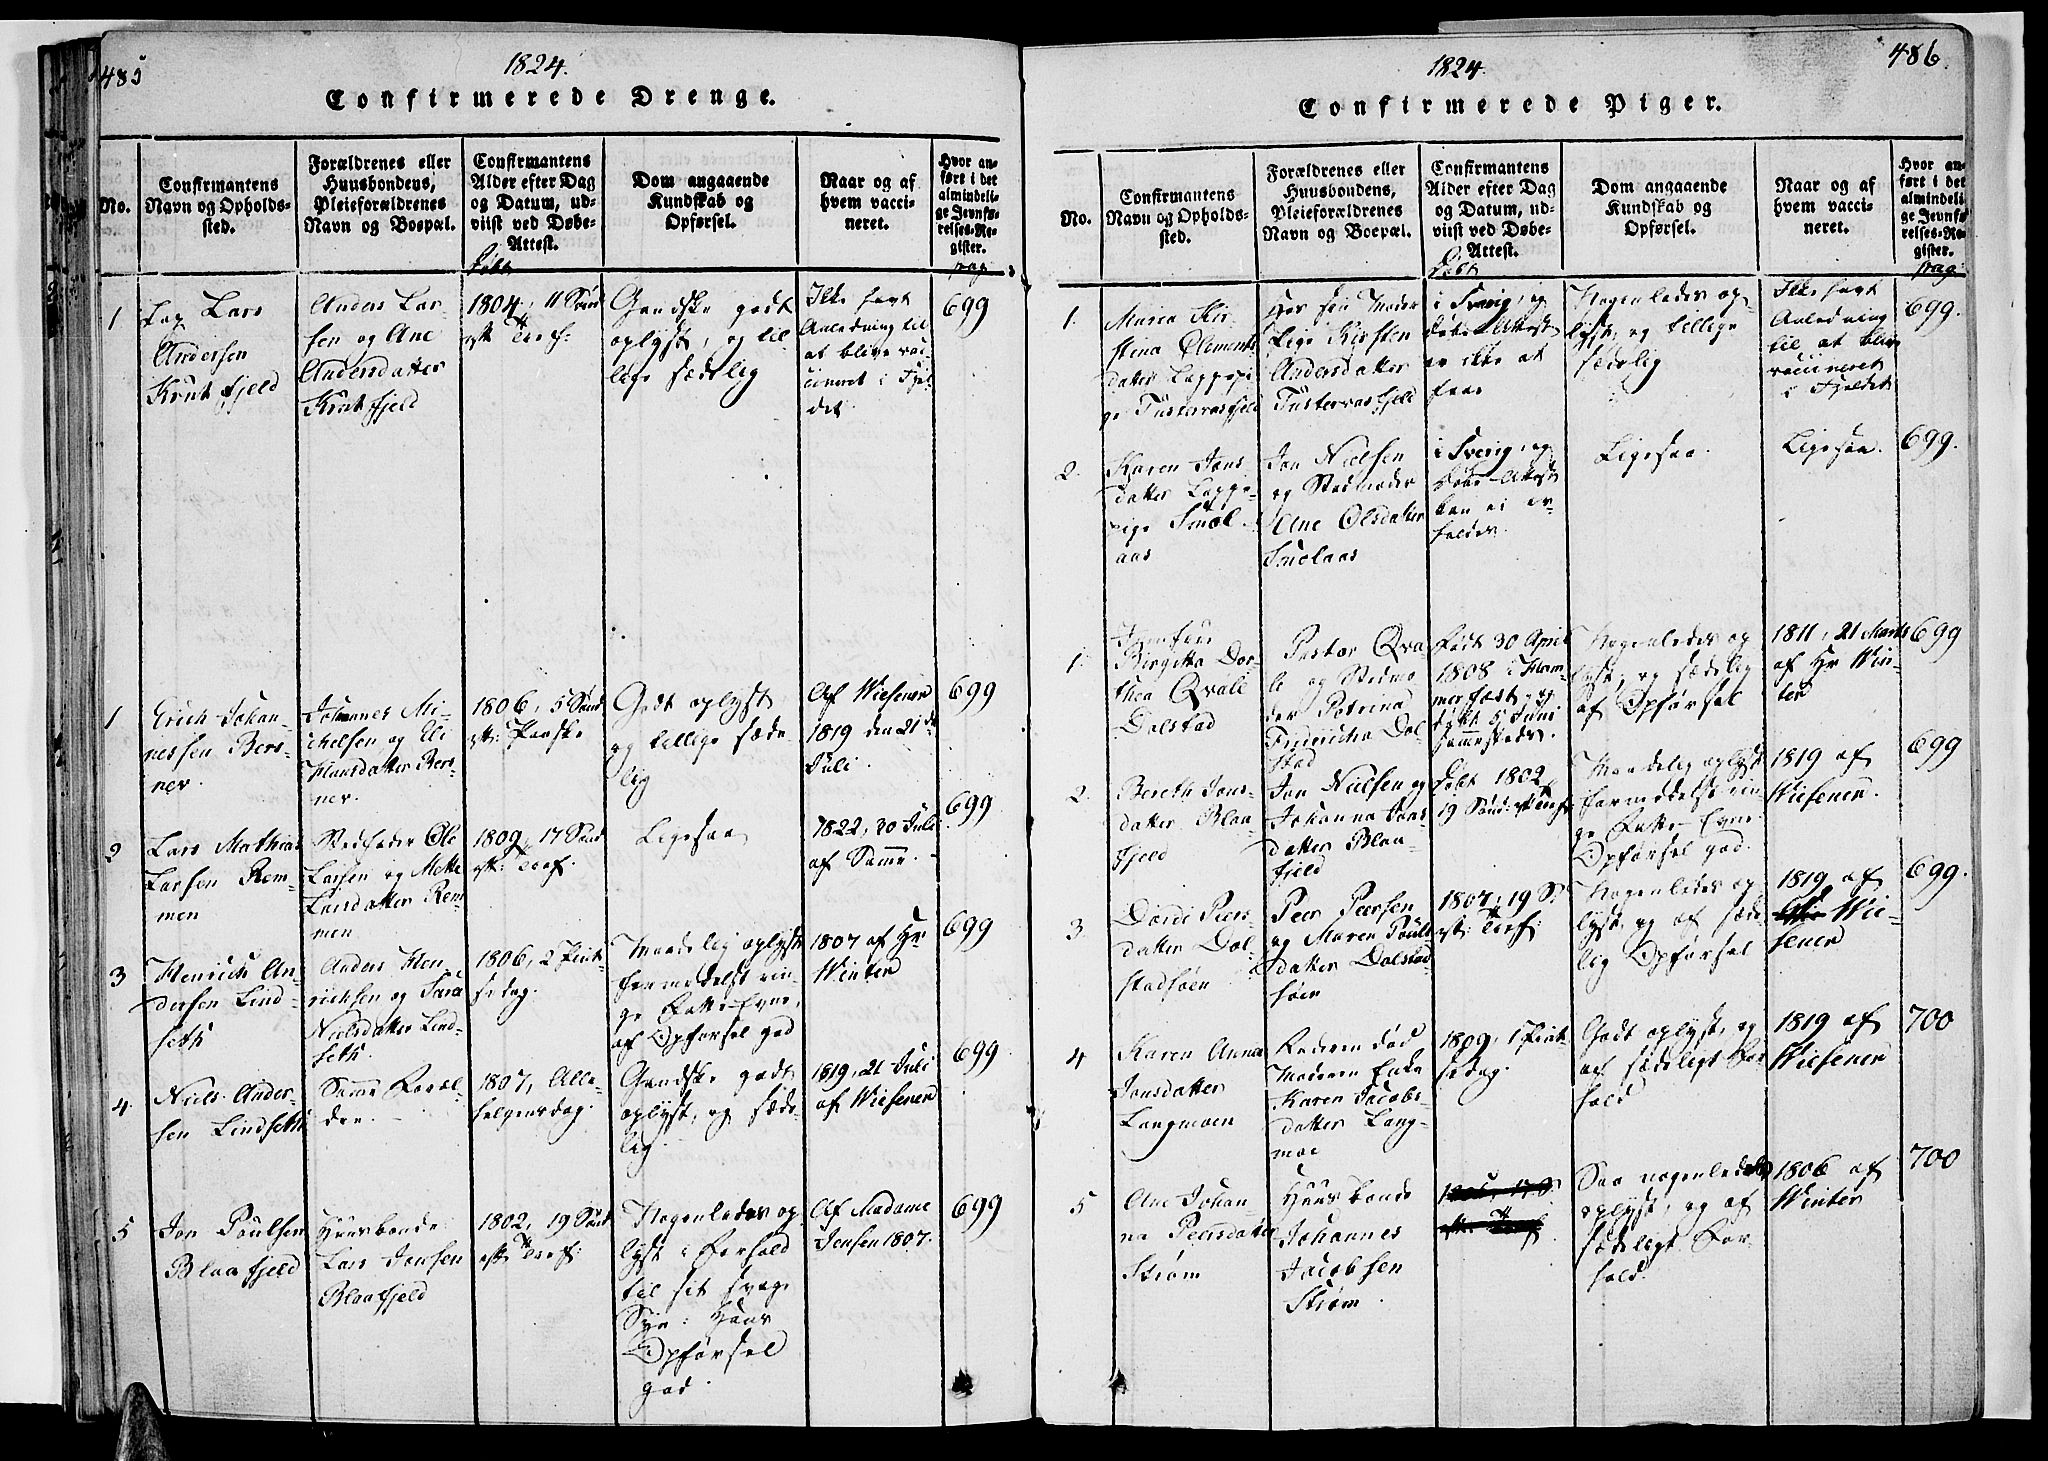 485
1824.
Confirmerede Drenge.
No.
Confirmantens
Navn og Opholds-
sted.
Forældrenes eller
Huusbondens,
Pleieforældrenes
Navn og Boepæl.
Confirmantens
Alder efter Dag
og Datum, ud-
viist ved Døbe-
Attest.
Døbt
Dom angaaende
Kundskab og
Opførsel.
Naar og af
hvem vacci-
neret.
Hvor an-
ført i det
almindeli-
ge Jevnfø-
relses-Re-
gister.
pag:
1
Lap Lars
Andersen
Krutfjeld
Anders Lar-
sen og Ane
Andersdatter
Krutfjeld
1804, 11 Sønd
eft: Tref:
Gandske godt
oplyst, og til-
lige sædelig
Ikke havt
Anledning til
at blive vac-
cineret i Fjel-
det.
699
1
Erich Johan-
nessen Bers-
nev.
Johannes Mi-
chelsen og Eli
Hansdatter Bers-
nev.
1806, 5 Sønd
eft: Paaske
Godt oplyst
og tillige sæde-
lig
Af Wiesener
1819 den 21de
Juli.
699
2
Lars Mathias
Larsen Rem-
men
Stedfader Ole
Larsen og Mette
Larsdatter Rem-
men
1809, 17 Sønd
eft: Tref:
Ligesaa
1822, 30 Juli
af Samme.
699
3
Henrich An-
dersen Lind-
seth
Anders Hen-
richsen og Sara
Nielsdatter Lind-
seth.
1806, 2 Pint-
sedag.
Maadelig oplyst
formedelst rin-
ge Fatte-Evne,
af Opførsel god
1807 af Hr
Winter
699
4.
Niels Ander-
sen Lindseth
Samme Foræl-
dre.
1807, Alle-
helgensdag.
Gandske godt
oplyst, og sæde-
lig.
1819, 21 Juli
af Wiesener
699
5
Jon Poulsen
Blaafjeld
Huusbonde
Lars Jonsen
Blaafjeld
1802, 19 Sønd
eft: Tref:
Nogenledes op-
lyst i Forhold
til sit svage
Syn: Hans
Opførsel
god.
Af Madame
Jensen 1807.
699
486.
1824.
Confirmerede Piger.
No.
Confirmantens
Navn og Opholds-
sted.
Forældrenes eller
Huusbondens,
Pleieforældrenes
Navn og Boepæl.
Confirmantens
Alder efter Dag
og Datum, ud-
viist ved Døbe-
Attest.
Døbt
Dom angaaende
Kundskab og
Opførsel.
Naar og af
hvem vacci-
neret.
Hvor an-
ført i det
almindeli-
ge Jevnfø-
relses-Re-
gister.
pag:
1.
Maria Kir-
stina Clements-
datter Lappepi-
ge Tustervasfjeld
Hos sin Moder
Pige Kirsten
Andersdatter
Tustervasfjeld
i Sverig, og
Døbe-Attest
er ikke at
faae
Nogenledes op-
lyst, og tillige
sædelig
Ikke havt
Anledning
til at blive
vaccineret
i Fjeldet
699.
2.
Karen Jons-
datter Lappe-
pige Smol-
aas
Jon Nielsen
og Stedmoder
Ane Olsdatter
Smolaas
i Sverig, og
Døbe-Attest
kan ei er-
holdes.
Ligesaa.
Ligesaa.
699.
1.
Jomfrue
Birgitta Dor-
thea Qvale
Dolstad
Pastor Qva-
le og Stedmo-
der Petrina
Fridericha Dol-
stad
Født 30 April
1808 i Ham-
merfest, og
døbt 5 Juni
sammesteds.
Nogenledes op
lyst, og sædelig
af Opførsel
1811, 21 Marts
af Hr Win-
ter
699
2.
Bereth Jons-
datter Blaa-
fjeld
Jon Nielsen og
Johanna Jons-
datter Blaa-
fjeld
Døbt 1802
19 Sønd: eft Tref:
Maadelig oplyst
formedelst rin-
ge Fatte-Evne.
Opførsel god.
1819 af
Wiesener.
699
3.
Dordi Peers-
datter Dol-
stadsøen
Peer Peersen
og Maren Pouls-
datter Dolstad-
søen
1807, 19 S:
eft: Tref:
Nogenledes op-
lyst, og af sæde-
lig Opførsel
1819 af
Wie-
sener
699.
4
Karen Anna
Jonsdatter
Langmoen
Faderen død
Moderen Enke
Karen Jacobs-
datter Lang-
moe
1809, 1 Pint-
sedag.
Godt oplyst, og
af sædeligt For-
hold
1819 af
Wiesener
700
5
Ane Johan-
na Peersdatter
Strøm
Huusbonde
Johannes
Jacobsen
Strøm.
Saa nogenledes
oplyst, og af
sædeligt For-
hold.
1806 af
Winter
700